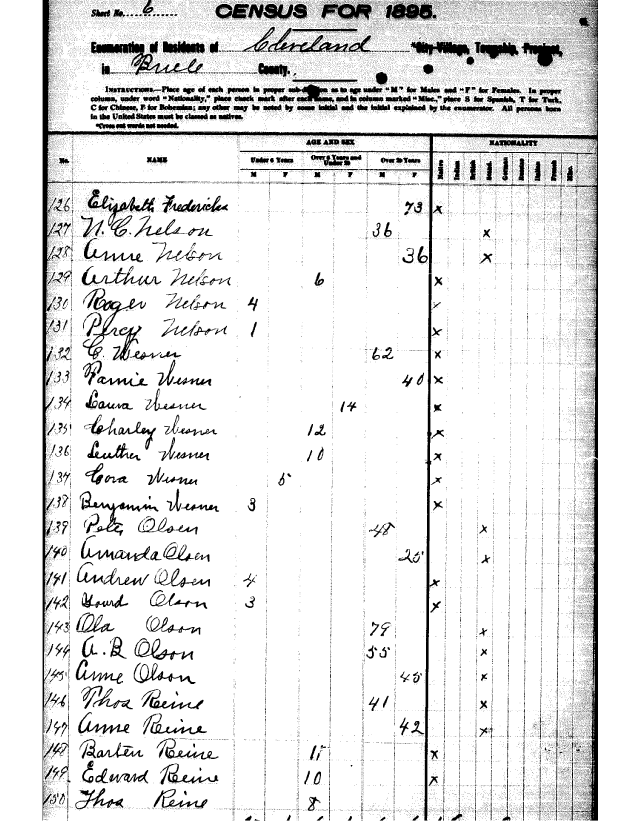 Sheet No. 6
CENSUS FOR 1895.
Enumeration of Residents of Cleveland *City-Village, Township, Precinct,
in Buele County.
INSTRUCTIONS.—Place age of each person in proper sub-division as to age under "M" for Males and "F" for Females. In proper
column, under word "Nationality," place check mark after each name, and in column marked "Misc," place S for Spanish, T for Turk,
C for Chinese, F for Bohemian; any other may be noted by some initial and the initial explained by the enumerator. All persons born
in the United States must be classed as natives.
*Cross out words not needed.
AGE AND SEX NATIONALITY
No. NAME Under 6 Years Over 6 Years and Under 20 Over 20 Years
M F M F M F
126 Elizabeth Fredericks 73 x
127 N. C. Nelson 36 x
128 Anne Nelson 36 x
129 Arthur Nelson 6 x
130 Roger Nelson 4 x
131 Percy Nelson 1 x
132 C. Wesner 62 x
133 Wesner 40 x
134 Laura Wesner 14 x
135 Charley Wesner 12 x
136 Luther Wesner 10 x
137 Cora Wesner 5 x
138 Benjamin Wesner 3 x
139 Peter Olsen 48 x
140 Amanda Olsen 25 x
141 Andrew Olsen 4 x
142 Olson 3 x
143 Ola Olson 79 x
144 A. B Olson 55 x
145 Anne Olson 45 x
146 Thos Reine 41 x
147 Anne Reine 42 x
148 Barten Reine 11 x
149 Edward Reine 10 x
150 Thos Reine 8